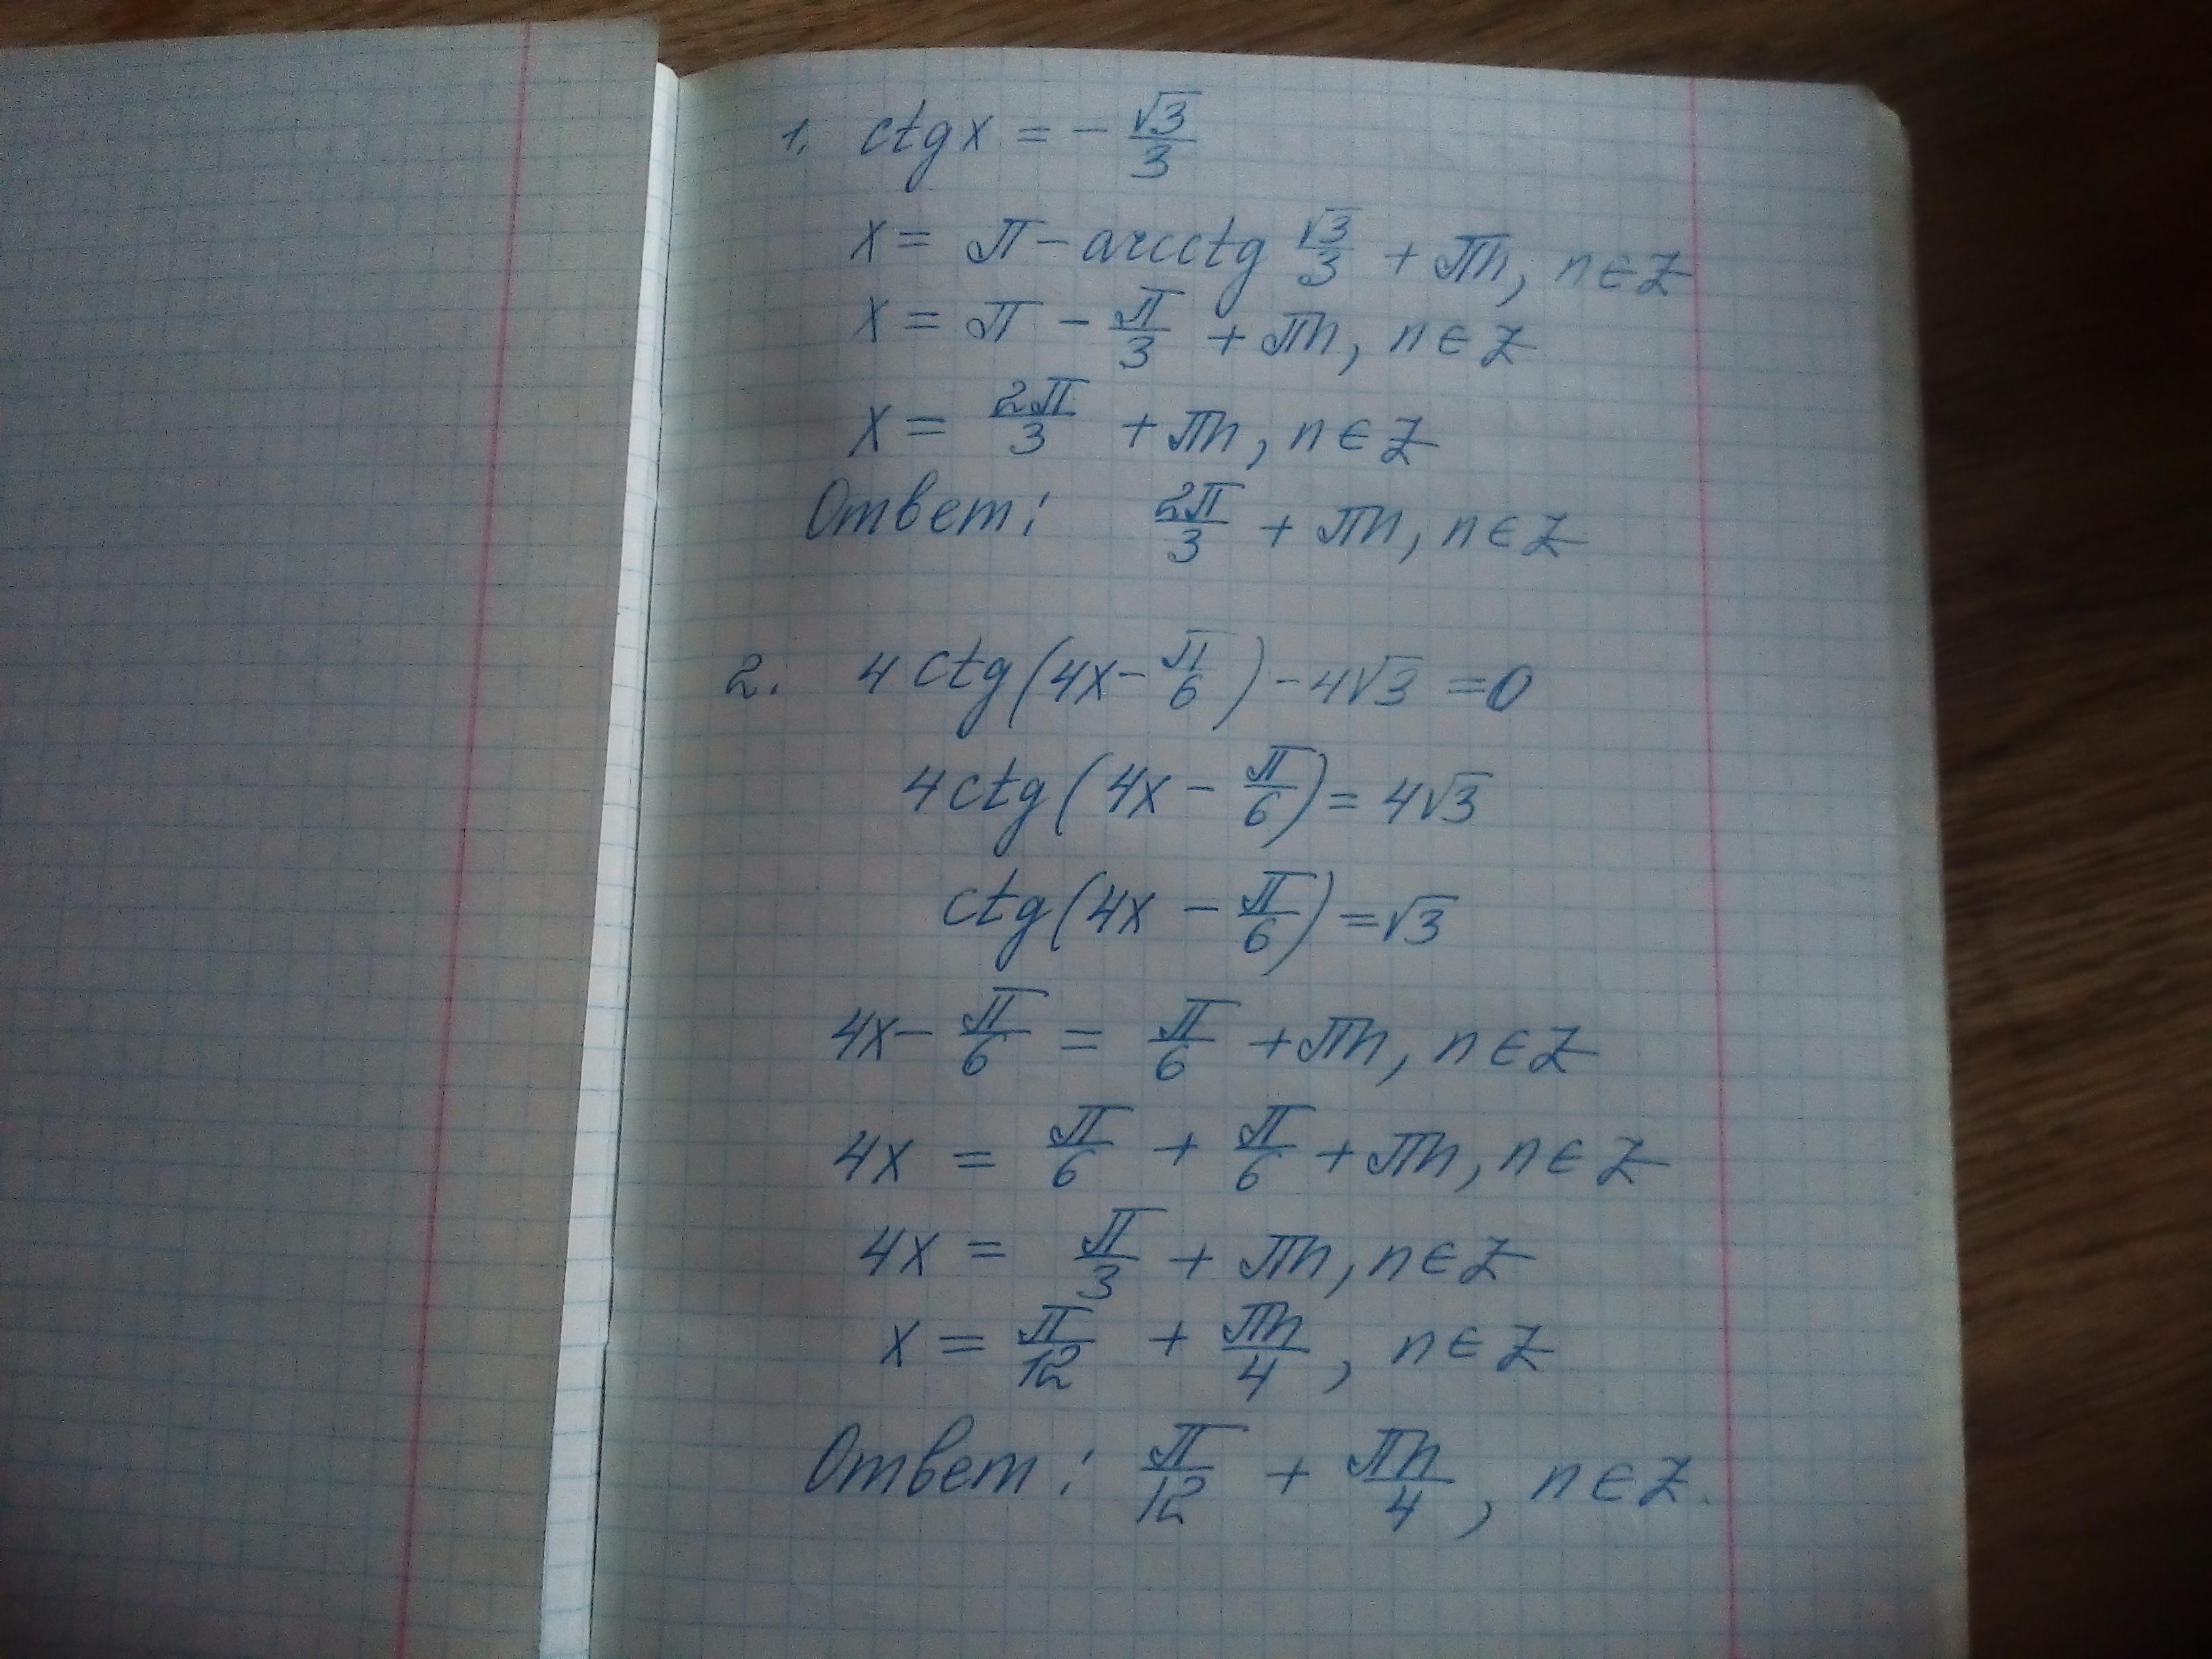 1. ctg x = - √3/3
x = π - arcctg √3/3 + πn, n ∈ Z
x = π - π/3 + πn, n ∈ Z
x = 2π/3 + πn, n ∈ Z
Ответ: 2π/3 + πn, n ∈ Z
2. 4 ctg(4x - π/6) - 4√3 = 0
4 ctg(4x - π/6) = 4√3
ctg(4x - π/6) = √3
4x - π/6 = π/6 + πn, n ∈ Z
4x = π/6 + π/6 + πn, n ∈ Z
4x = π/3 + πn, n ∈ Z
x = π/12 + πn/4, n ∈ Z
Ответ: π/12 + πn/4, n ∈ Z.